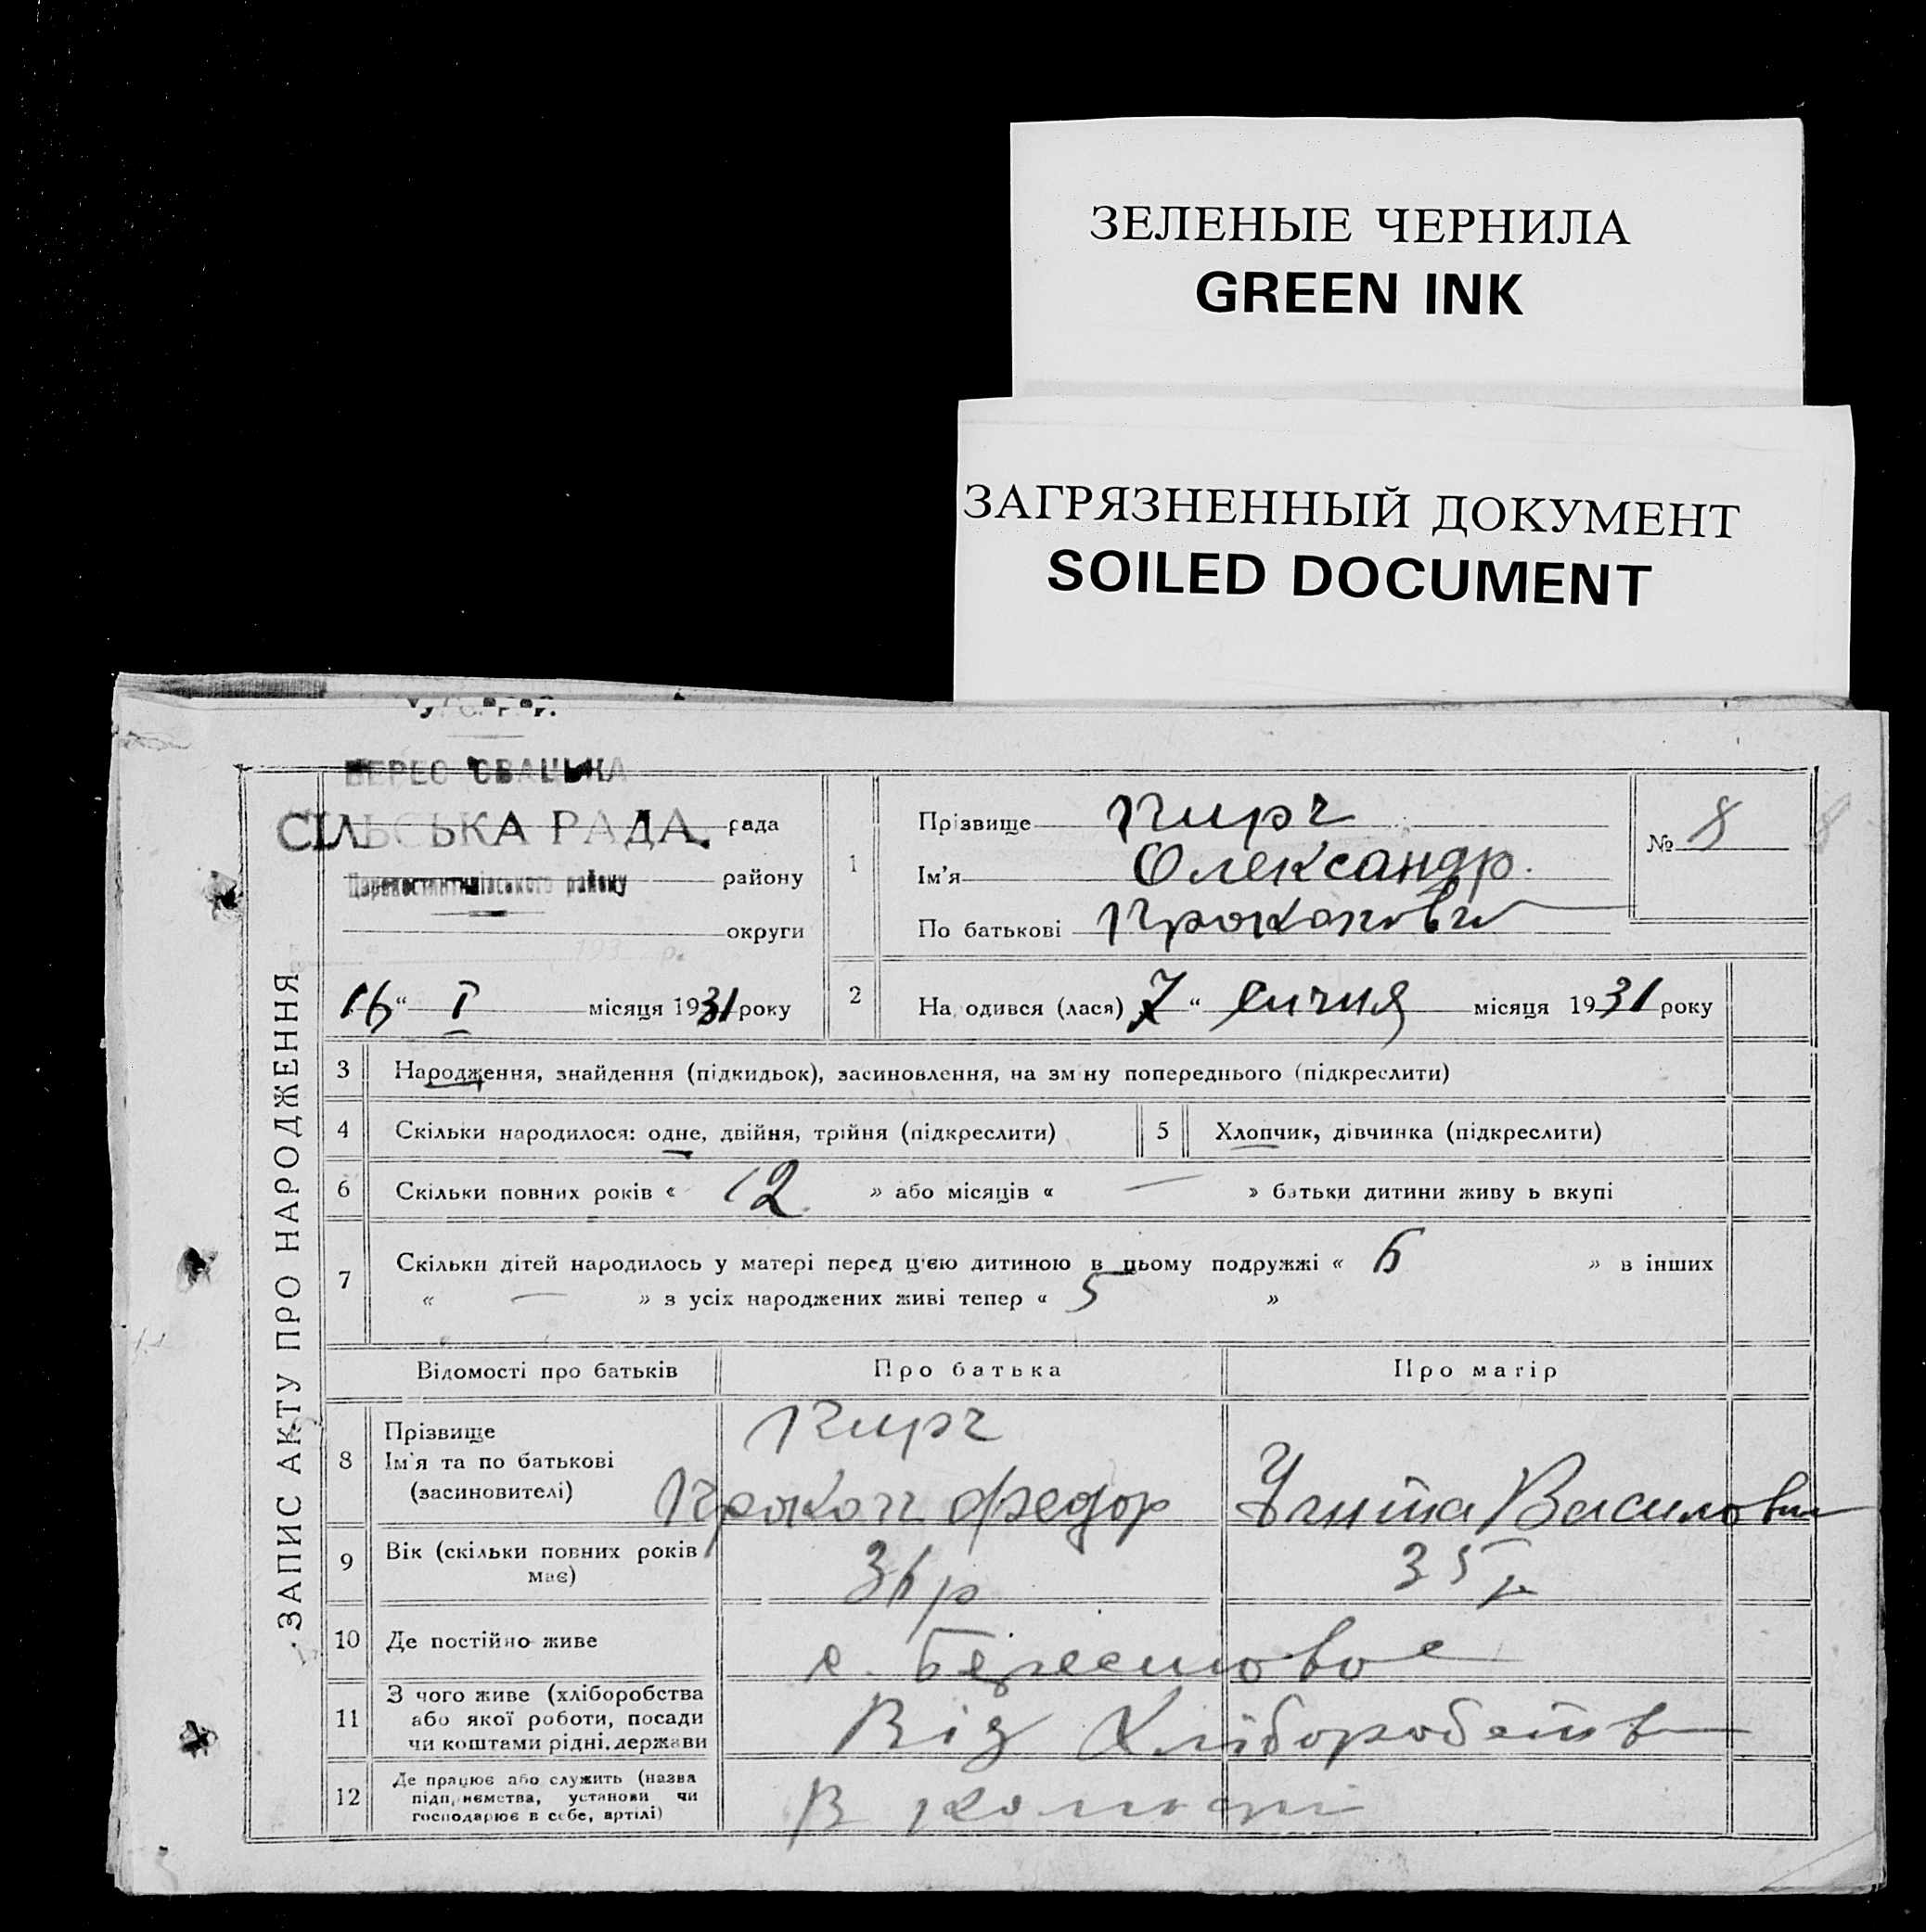 ЗЕЛЕНЫЕ ЧЕРНИЛА
GREEN INK
ЗАГРЯЗНЕННЫЙ ДОКУМЕНТ
SOILED DOCUMENT
ЗАПИС АКТУ ПРО НАРОДЖЕННЯ
СІЛЬСЬКА РАДА. рада
району
округи
193 р.
16 " I місяця 1931 року
1 Прізвище Кирч
Ім'я Олександр.
По батькові Прокопови
№ 8
2 На одився (лася) 7 " сичня місяця 1931 року
3 Народження, знайдення (підкидьок), засиновлення, на зміну попереднього (підкреслити)
4 Скільки народилося: одне, двійня, трійня (підкреслити)
5 Хлопчик, дівчинка (підкреслити)
6 Скільки повних років « 12 » або місяців « — » батьки дитини живу ь вкупі
7 Скільки дітей народилось у матері перед цією дитиною в цьому подружжі « 6 » в інших
« — » з усіх народжених живі тепер « 5 »
Відомості про батьків Про батька Про матір
8 Прізвище Кирч
Ім'я та по батькові
(засиновителі) Прокоп Федор Василовн
9 Вік (скільки повних років має) 36 р 35 р
10 Де постійно живе с. Берестовое
11 З чого живе (хліборобства
або якої роботи, посади
чи коштами рідні, держави Від Хліборобств
12 Де працює або служить (назва
підприємства, установи чи
господарює в себе, артілі) В